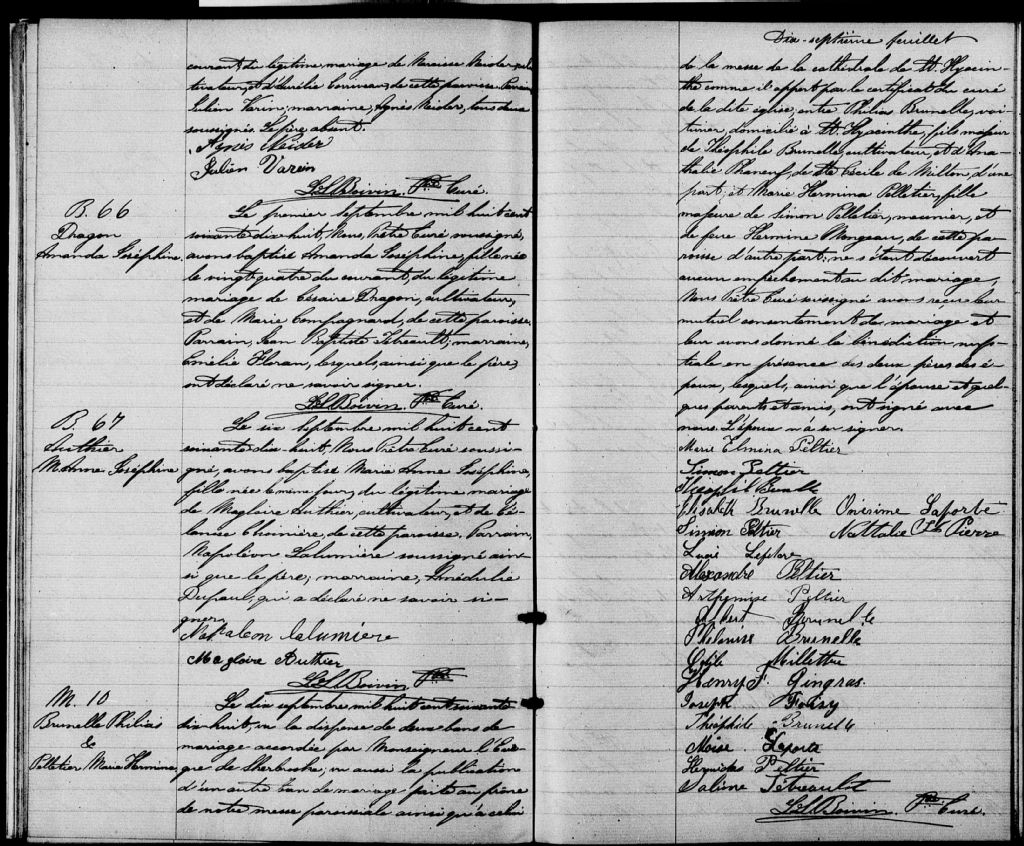 courant du légitime mariage de Narcisse Neider, cul
tivateur, et d'Aurélie Corriveau, de cette paroisse. Parrain
Julien Varin; marraine, Agnès Neider, tous deux
soussignés. Le père absent.
Agnès Neider
Julien Varein
J.L. Boivin. Ptre Curé.
B. 66
Dragon
Amanda Joséphine.
Le premier septembre mil huit cent
soixante dix huit, Nous, Prêtre Curé soussigné,
avons baptisé Amanda Joséphine, fille née
le vingt quatre du courant, du légitime
mariage de Césaire Dragon, cultivateur,
et de Marie Compagnard, de cette paroisse.
Parrain, Jean Baptiste Tétreault; marraine,
Emélie Floran, lesquels, ainsi que le père,
ont déclaré ne savoir signer.
J.L. Boivin. Ptre Curé.
B. 67
Authier
M. Anne Joséphine
Le six septembre mil huit cent
soixante dix huit, Nous Prêtre Curé soussi-
gné, avons baptisé Marie Anne Joséphine,
fille née le même jour, du légitime mariage
de Magloire Authier, cultivateur, et de
Choinière, de cette paroisse. Parrain,
Napoléon Lalumière soussigné ain-
si que le père; marraine,
Dufault, qui a déclaré ne savoir si-
gner.
Napoleon lalumiere
Magloire Authier
J.L. Boivin Ptre
M. 10
Brunelle Philias
&
Pelletier Marie Hermina
Le dix septembre mil huit cent soixante
dix huit, vu la dispense de deux bans de
mariage accordée par Monseigneur l'Evê-
que de Sherbrooke; vu aussi la publication
d'un autre ban de mariage faite au prône
de notre messe paroissiale ainsi qu'à celui
Dix-septième feuillet
de la messe de la cathédrale de St. Hyacin-
the comme il appert par le certificat du curé
de la dite église, entre Philias Brunelle, voi-
turier, domicilié à St. Hyacinthe, fils majeur
de Théophile Brunelle, cultivateur, et d'Ana-
thalie Phaneuf, de Ste Cécile de Milton, d'une
part; et Marie Hermina Pelletier, fille
majeure de Simon Pelletier, meunier, et
de feue Hermine Mongeau, de cette pa-
roisse d'autre part; ne s'étant découvert
aucun empêchement au dit mariage,
Nous Prêtre Curé soussigné avons reçu leur
mutuel consentement de mariage et
leur avons donné la bénédiction nup-
tiale en présence des deux pères des é-
poux, lesquels, ainsi que l'épouse et quel-
ques parents et amis, ont signé avec
nous. L'époux n'a su signer.
Marie Elmina Peltier
Simon Peltier
Theophil Brunelle
Elisabeth Brunelle Onésime Laporte
Simon Peltier Nathalie St Pierre
Lucie Lefebre
Alexandre Peltier
Arthemise Peltier
Robert Brunelle
Philomise Brunelle
Odile Millette
Henry F. Gingras.
Joseph Foisy
Théophile Brunelle
Moise. Laporte
Hermides Peltier
Salime Tétreault
J.L. Boivin. Ptre. Curé.